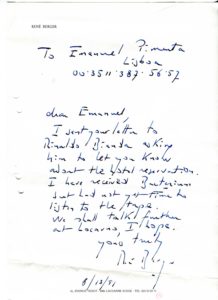 RENÉ BERGER
To Emanuel Pimenta
Lisboa
00.3511.387.56.57
dear Emanuel,
I sent your letter to
Rinaldo Bianda asking
him to let you know
about the hotel reservation.
I have received
but had not yet time to
listen to the tape.
We shall talk further
at Locarno, I hope.
yours truly
René Berger